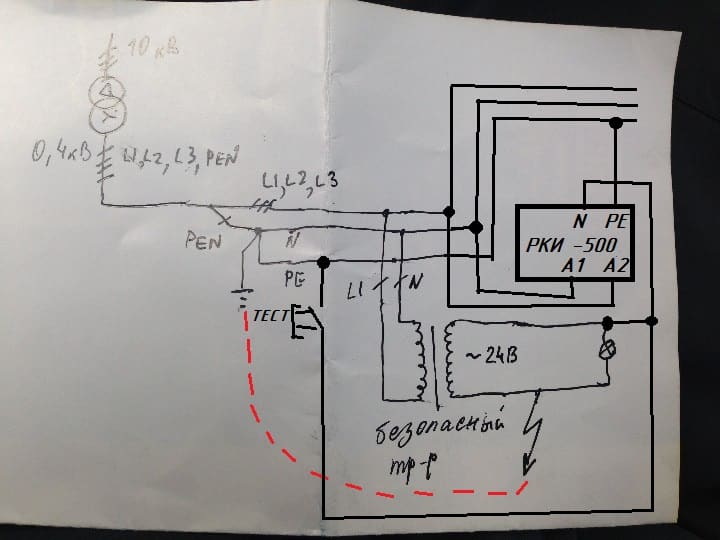 10 кВ
0,4кВ
L1, L2, L3, PEN
L1, L2, L3
PEN
N
PE
ТЕСТ
L1
N
N PE
РКИ -500
A1 A2
~24В
безопасный
тр-р